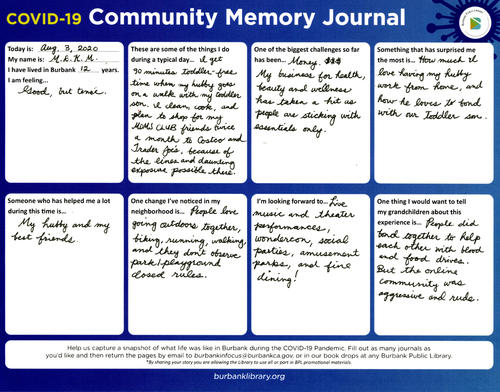 COVID-19 Community Memory Journal
Today is: Aug. 3, 2020
My name is: M.D.K.M.
I have lived in Burbank 12 years.
I am feeling...
Good, but tense.
These are some of the things I do
during a typical day... I get
90 minutes toddler-free
time when my hubby goes
on a walk with my toddler
son. I clean, cook, and
plan to shop for my
MOMS CLUB friends twice
a month to Costco and
Trader Joe's, because of
the lines and daunting
exposure possible there.
One of the biggest challenges so far
has been... Money. $$$
My business for health,
beauty and wellness
has taken a hit as
people are sticking with
essentials only.
Something that has surprised me
the most is... How much I
love having my hubby
work from home, and
how he loves to bond
with our toddler son.
Someone who has helped me a lot
during this time is...
My hubby and my
best friends.
One change I've noticed in my
neighborhood is... People love
going outdoors together,
biking, running, walking,
and they don't observe
park/playground
closed rules.
I'm looking forward to... Live
music and theater
performances,
wondercon, social
parties, amusement
parks, and fine
dining!
One thing I would want to tell
my grandchildren about this
experience is... People did
band together to help
each other with blood
and food drives.
But the online
community was
aggressive and rude.
Help us capture a snapshot of what life was like in Burbank during the COVID-19 Pandemic. Fill out as many journals as
you'd like and then return the pages by email to burbankinfocus@burbankca.gov, or in our book drops at any Burbank Public Library.
*By sharing your story you are allowing the Library to use all or part in BPL promotional materials.
burbanklibrary.org